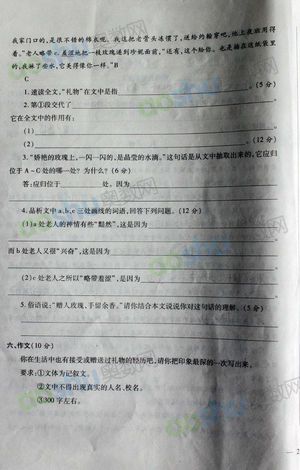 我家门口的,是很不错的棉衣呢。我这把老骨头冻惯了,送给约翰穿吧,他上夜班用得
着。"老人略带c.羞涩地把一枝玫瑰递到珍妮面前,"还有,这个给你。也是插在这纸袋里
的,我淋了些水,它美得像你一样。"B
C
1.速读全文,"礼物"在文中是指 。(5分)
2.第①段交代了
它在全文中的作用有:
(1)
(2) (12分)
3."娇艳的玫瑰上,一闪一闪的,是晶莹的水滴。"这句话是从文中抽取出来的,它应归
位于A~C处的哪一处?为什么?(6分)
答:应归位于 处。因为
4.品析文中a、b、c三处画线的词语,回答下列问题。(12分)
(1)a处老人的神情有些"黯然",这是因为
而b处老人又很"兴奋",这是因为
(2)c处老人之所以"略带羞涩",是因为
5.俗语说:"赠人玫瑰、手留余香。"请你结合本文说说你对这句话的理解。(5分)
六、作文(10分)
你在生活中也有接受或赠送过礼物的经历吧,请你把印象最深的一次写出来。
要求:①文体为记叙文。
②文中不得出现真实的人名、校名。
③300字左右。
— 2
奥数网
奥数网